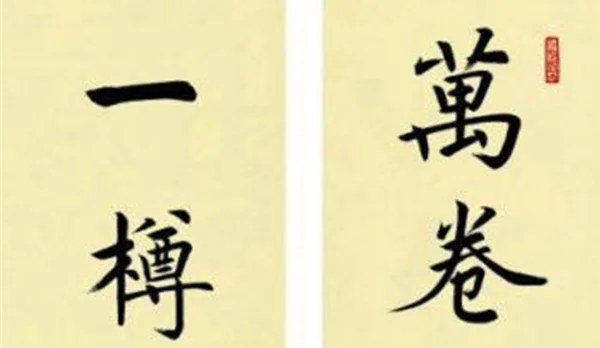 萬卷
一樽